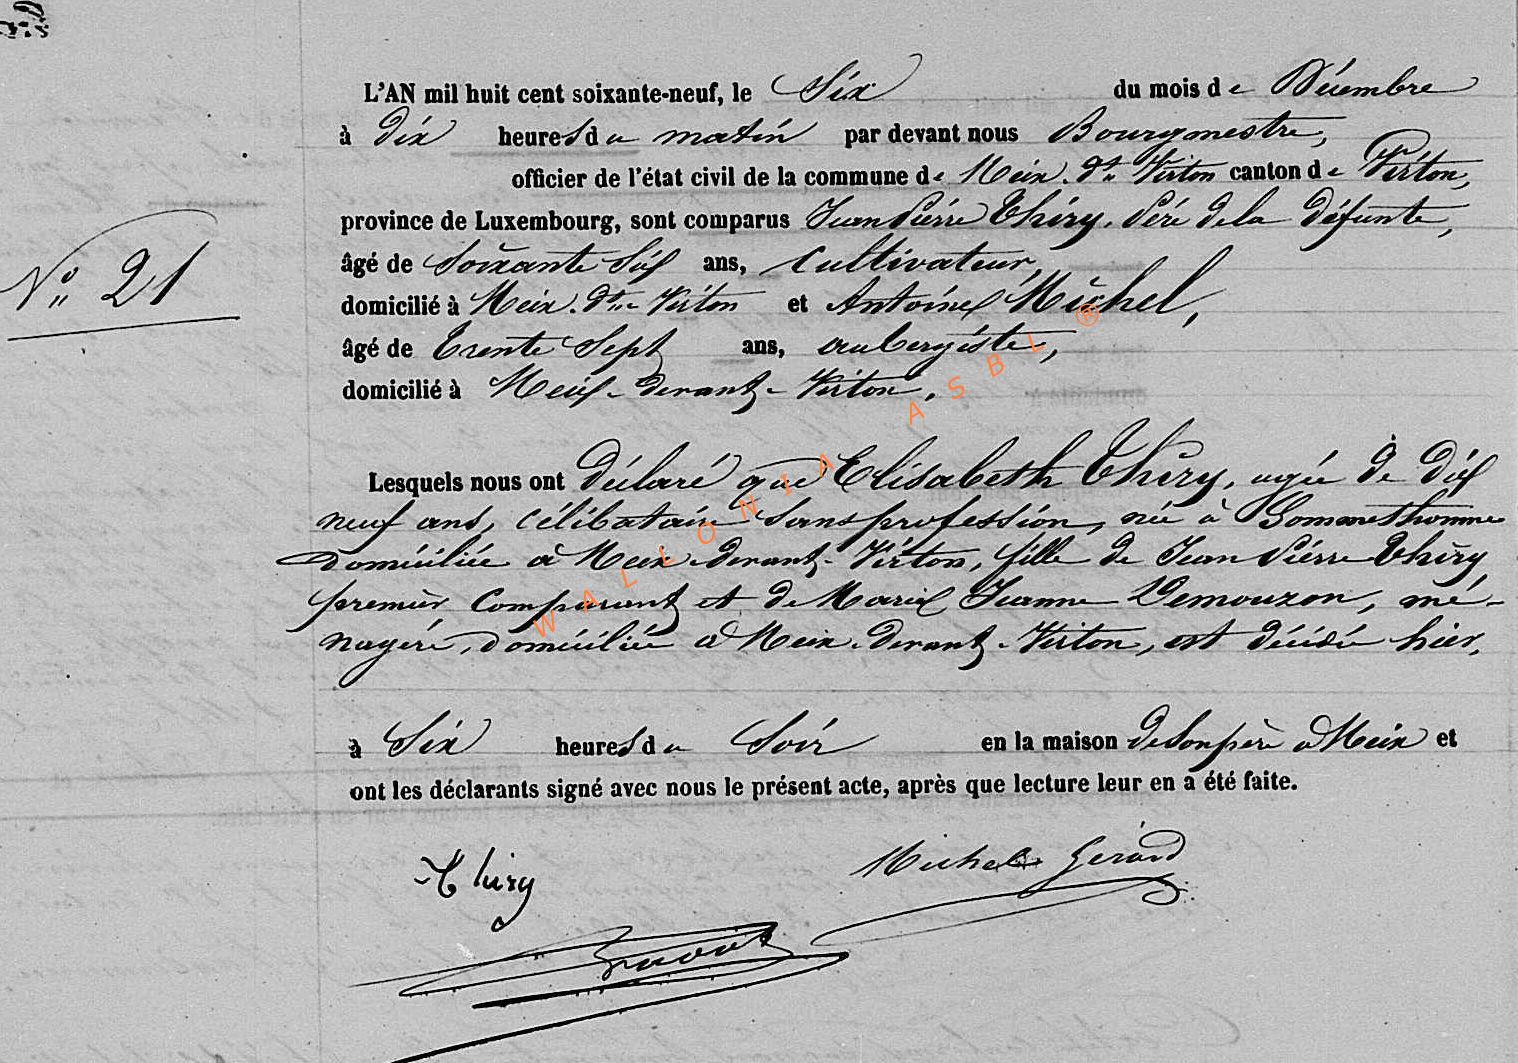 L'AN mil huit cent soixante-neuf, le Six du mois de Décembre
à Dix heures du matin par devant nous Bourgmestre,
officier de l'état civil de la commune de Meix-dt-Virton canton de Virton,
province de Luxembourg, sont comparus Jean Pierre Thiry, Père de la défunte,
âgé de Soixante Six ans, Cultivateur,
N° 21
domicilié à Meix-dt-Virton et Antoine Michel,
âgé de Trente Sept ans, aubergiste,
domicilié à Meix-devant-Virton.
Lesquels nous ont déclaré que Elisabeth Thiry, agée de dix
neuf ans, célibataire sans profession, née à Sommethonne
domiciliée à Meix-devant-Virton, fille de Jean Pierre Thiry
premier Comparant et de Marie Jeanne Demouzon, mé-
nagère, domiciliée à Meix-devant-Virton, est décédée hier,
à Six heures du Soir en la maison de son père à Meix et
ont les déclarants signé avec nous le présent acte, après que lecture leur en a été faite.
Thiry Michel Gérard
WALLONIA ASBL ®